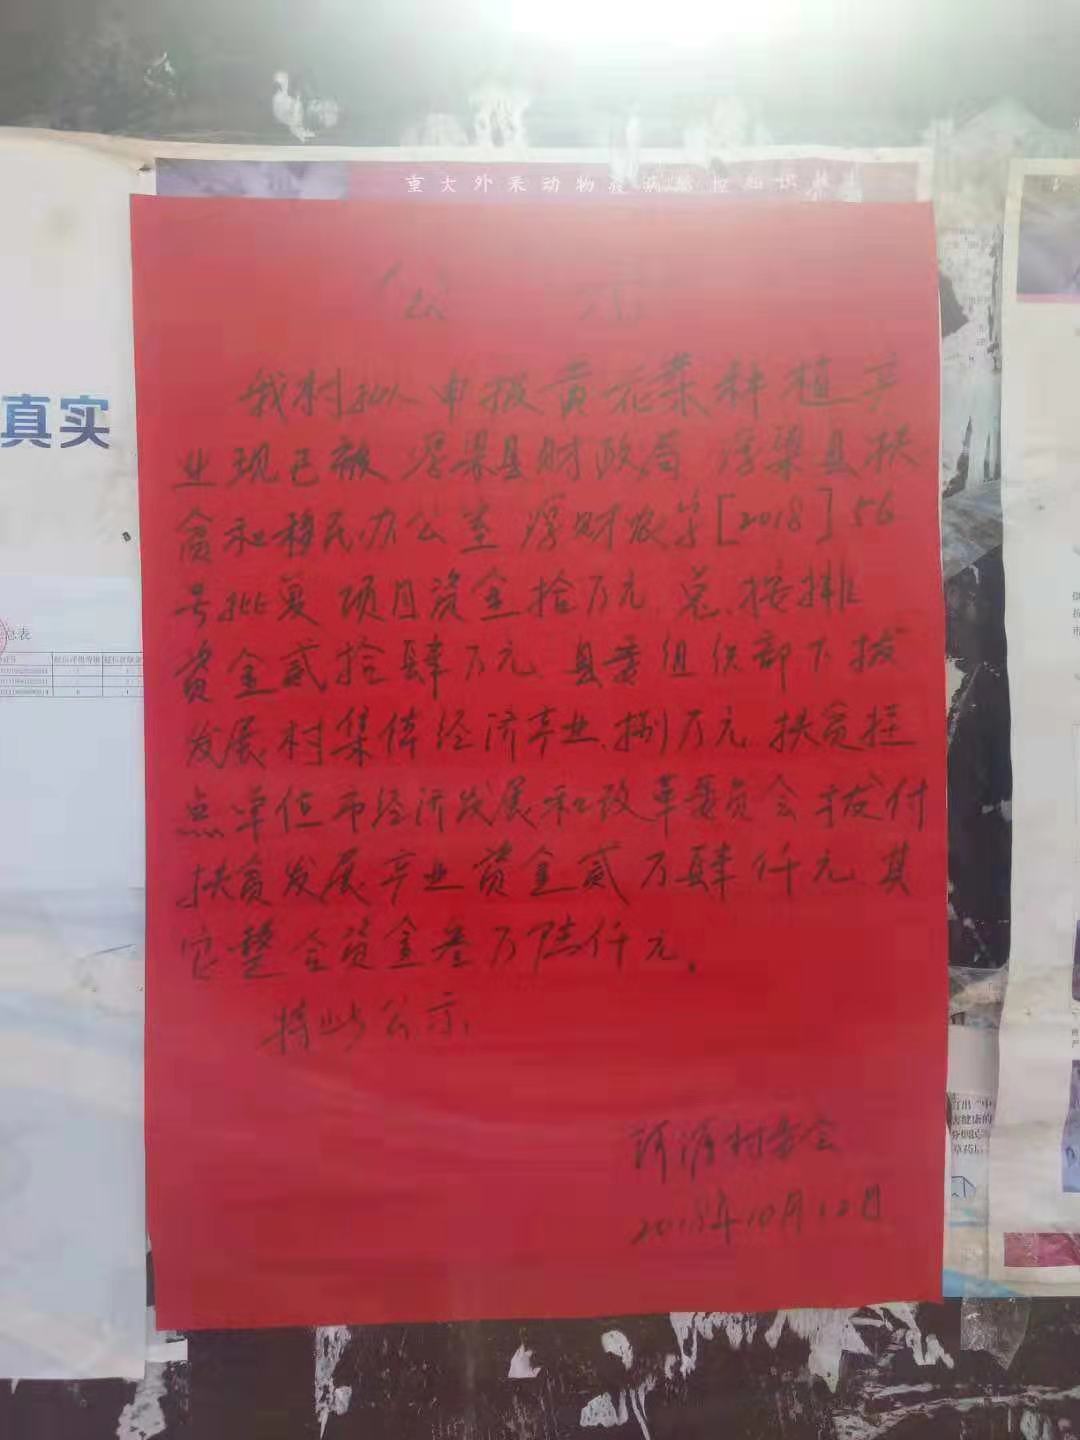 重大外来动物疫病防控知识
公 示
我村拟申报黄花菜种植产
业现已被 淳渠县财政局 淳渠县扶
贫和移民办公室 淳财农字[2018]56
号批复 项目资金拾万元 总 按排
资金贰拾肆万元、县委组织部下拔
发展村集体经济产业、捌万元、扶贫挂
点单位市经济发展和改革委员会拔付
扶贫发展产业资金贰万肆仟元、其
它整合资金叁万陆仟元。
特此公示、
村委会
2018年10月12日
真实
总表